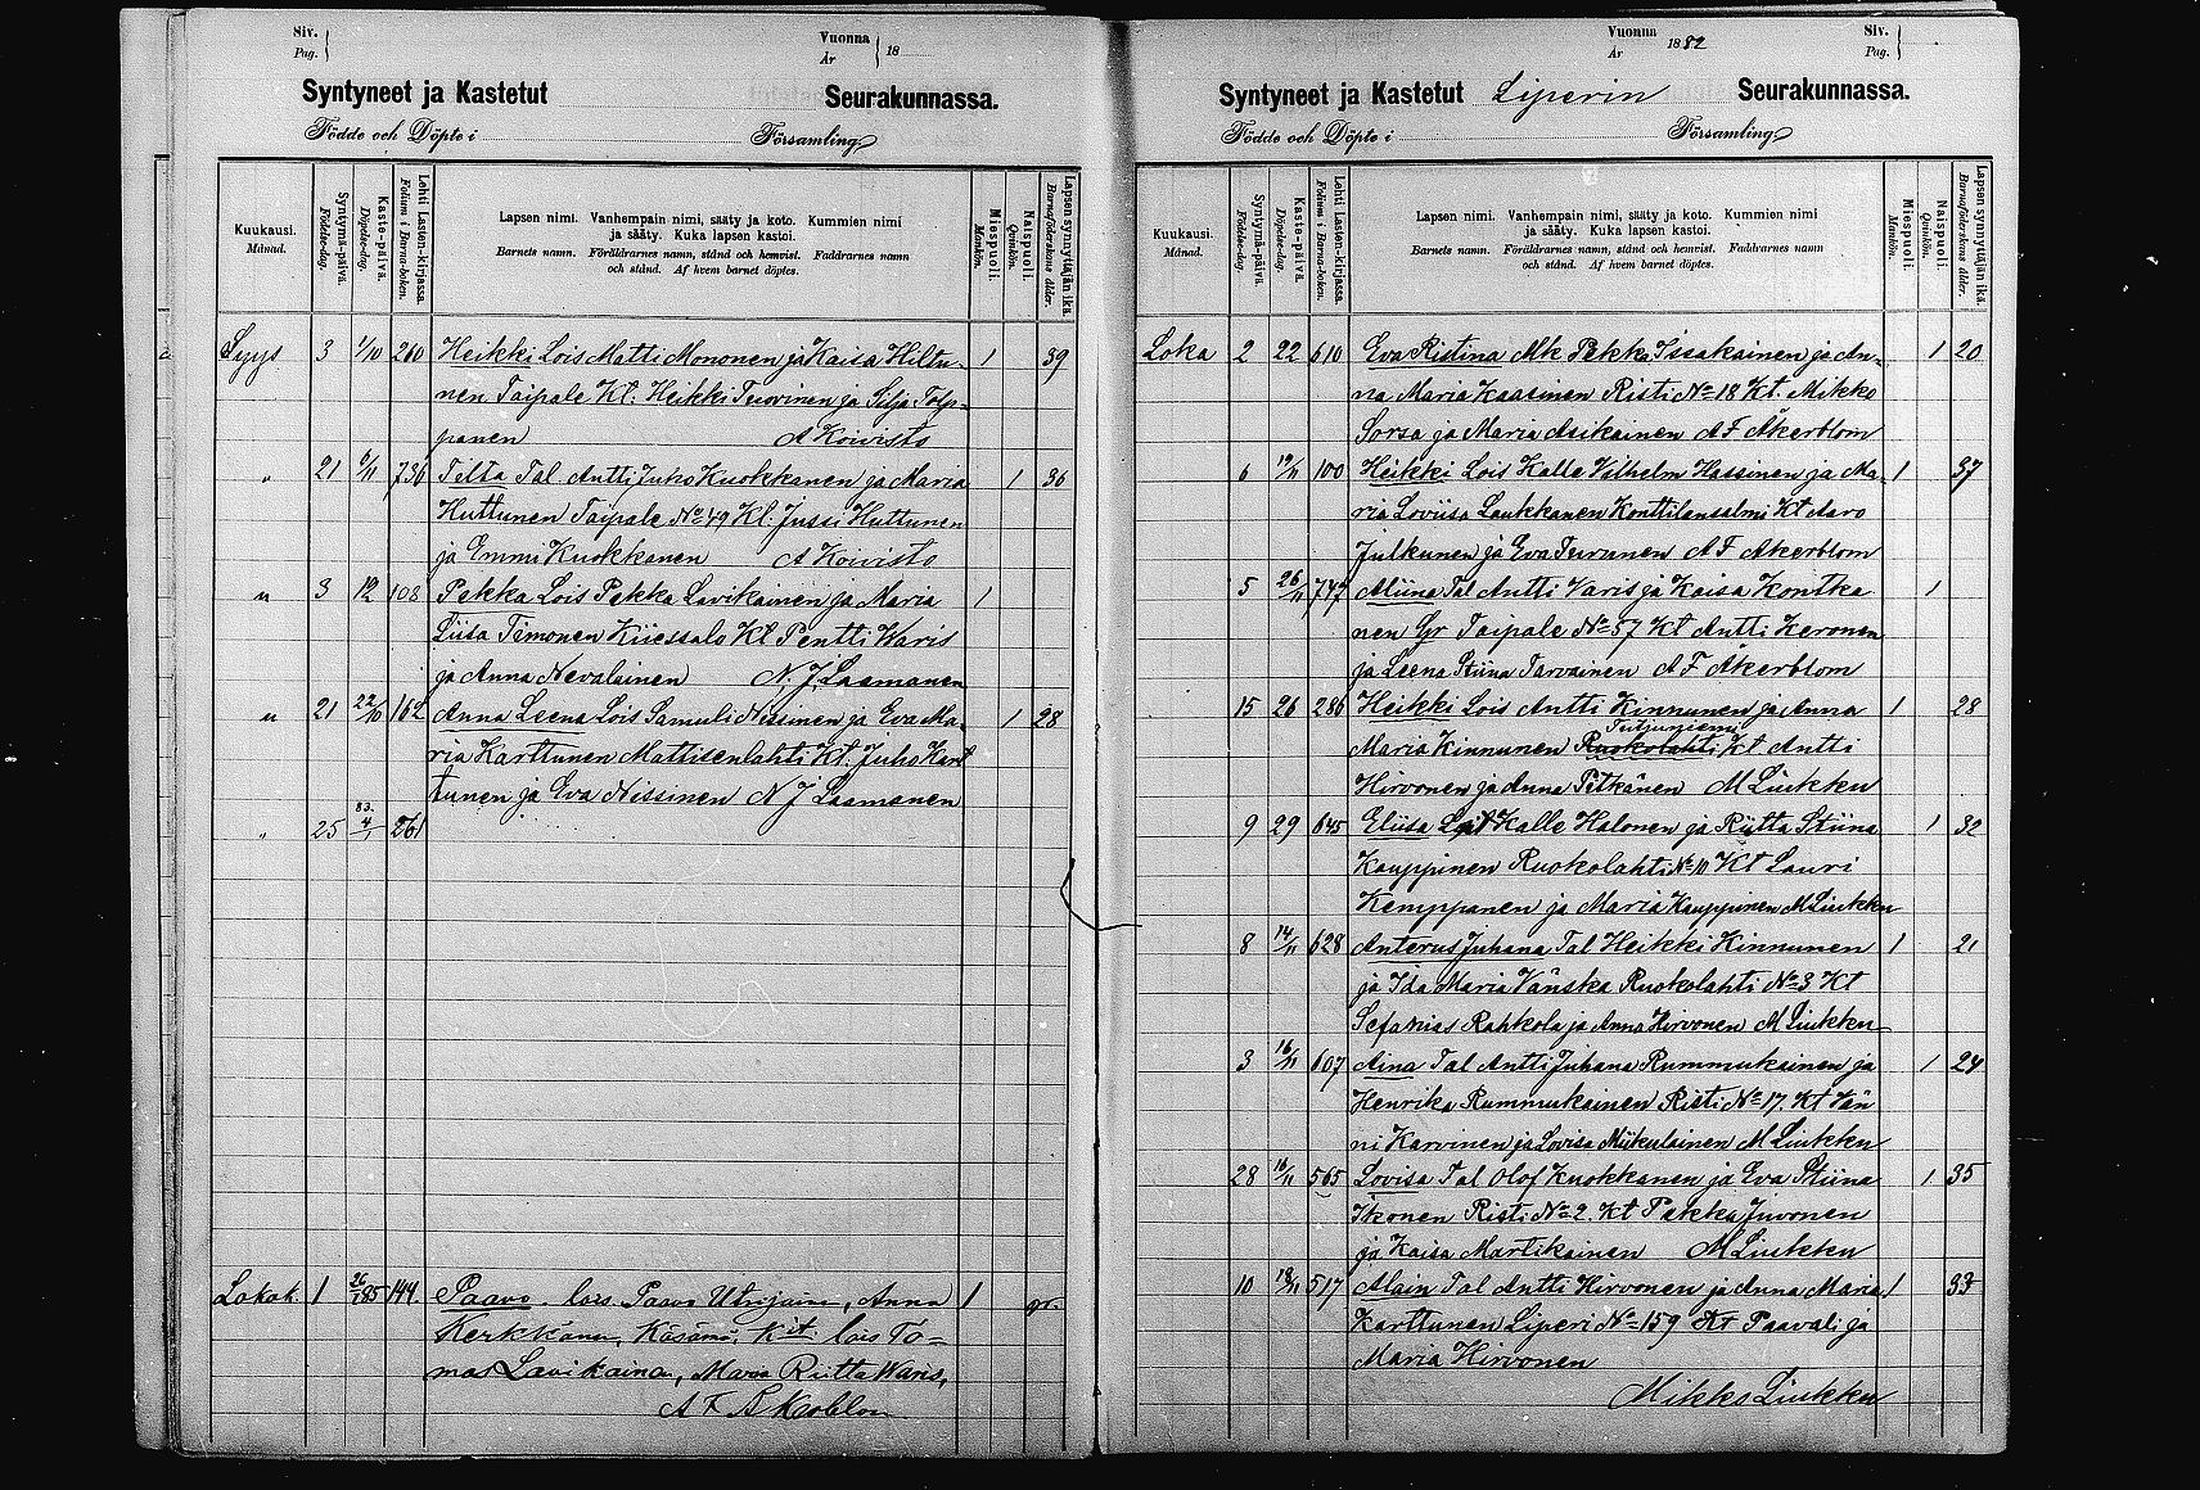 Siv.
Pag.
Vuonna
År
18
Syntyneet ja Kastetut Seurakunnassa.
Födde och Döpte i Församling
Kuukausi.
Månad.
Syntymä-päivä.
Födelse-dag.
Kaste-päivä.
Döpelse-dag.
Lehti Lasten-kirjassa.
Folium i Barna-boken.
Lapsen nimi. Vanhempain nimi, sääty ja koto. Kummien nimi
ja sääty. Kuka lapsen kastoi.
Barnets namn. Föräldrarnes namn, stånd och hemvist. Faddrarnes namn
och stånd. Af hvem barnet döptes.
Miespuoli.
Mankön.
Naispuoli.
Qvinkön.
Lapsen synnyttäjän ikä.
Barnaföderskans ålder.
Syys 3 1/10 260 Heikki Lois Matti Mononen ja Kaisa Hiltu- 1 39
nen Taipale Kt: Heikki Tuovinen ja Silja Tolp-
panen A Koivisto
" 21 6/11 736 Tilta Tal Antti Juho Kuokkanen ja Maria 1 36
Huttunen Taipale No 49 Kt: Jussi Huttunen
ja Emmi Kuokkanen A Koivisto
" 3 108 Pekka Lois Pekka Lavikainen ja Maria 1
Liisa Timonen Kiiessalo Kt Pentti Waris
ja Anna Nevalainen N. J. Laamanen
" 21 22/10 162 Anna Leena Lois Samuli Nissinen ja Eva Ma- 1 28
ria Karttunen Mattisenlahti Kt. Juho Kart
tunen ja Eva Nissinen N J Laamanen
" 25 83. 4/1 261
Lokak. 1 26/1 85 144. Paavo. lois. Paavo Utrijainen, Anna 1
Kerkkänen, Käsämä, Kit. lois To=
mas Lavikainen, Maria Riitta Waris,
A F Åkerblom
Vuonna
År
1882
Siv.
Pag.
Syntyneet ja Kastetut Liperin Seurakunnassa.
Födde och Döpte i Församling
Kuukausi.
Månad.
Syntymä-päivä.
Födelse-dag.
Kaste-päivä.
Döpelse-dag.
Lehti Lasten-kirjassa.
Folium i Barna-boken.
Lapsen nimi. Vanhempain nimi, sääty ja koto. Kummien nimi
ja sääty. Kuka lapsen kastoi.
Barnets namn. Föräldrarnes namn, stånd och hemvist. Faddrarnes namn
och stånd. Af hvem barnet döptes.
Miespuoli.
Mankön.
Naispuoli.
Qvinkön.
Lapsen synnyttäjän ikä.
Barnaföderskans ålder.
Loka 2 22 610 Eva Ristina Mk Pekka Issakainen ja An- 1 20
na Maria Kaasinen Risti No 18 Kt. Mikko
Sorsa ja Maria Asikainen A F Åkerblom
6 19/11 100 Heikki Lois Kalle Vilhelm Hassinen ja Ma- 1 37
ria Loviisa Laukkanen Konttilansalmi Kt Aaro
Julkunen ja Eva Turunen A F Åkerblom
5 26/11 747 Miina Tal Antti Varis ja Kaisa Kontka 1
nen Gr Taipale No 57 Kt Antti Keronen
ja Leena Stiina Tarvainen A F Åkerblom
15 26 286 Heikki Lois Antti Kinnunen ja Anna 1 28
Tutjuniemi
Maria Kinnunen Ruokolahti Kt Antti
Hirvonen ja Anna Pitkänen M Liukku
9 29 645 Eliisa Lois Kalle Halonen ja Riitta Stiina 1 32
Kauppinen Ruokolahti No 10 Kt Lauri
Kemppanen ja Maria Kauppinen M Liukku
8 14/11 628 Anterus Juhana Tal Heikki Kinnunen 1 21
ja Ida Maria Vänska Ruokolahti No 3 Kt
Sefanias Rahkola ja Anna Hirvonen M Liukku
3 16/11 607 Aina Tal Antti Juhana Rummukainen ja 1 24
Henrika Rummukainen Risti No 17. Kt Vän
ni Karvinen ja Lovisa Miikulainen M Liukku
28 16/11 565 Lovisa Tal Olof Kuokkanen ja Eva Stiina 1 35
Ikonen Risti No 2. Kt Pekka Juvonen
ja Kaisa Martikainen M Liukku
10 18/11 517 Alain Tal Antti Hirvonen ja Anna Maria 1 33
Karttunen Liperi No 159 Kt Paavali ja
Maria Hirvonen
Mikko Liukku